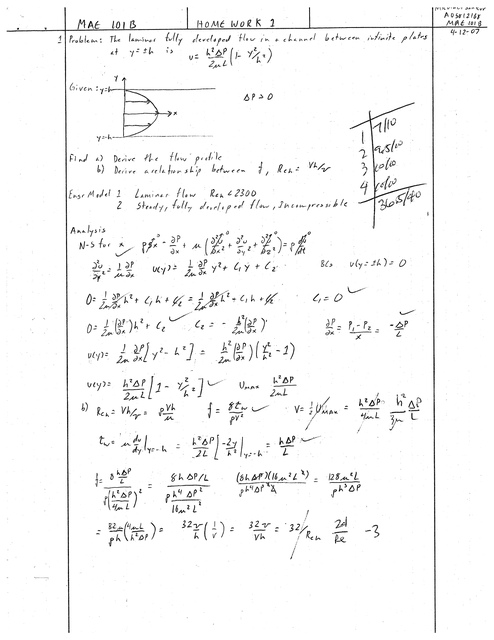 MAE 101B HOMEWORK 1
A05812188
MAE 101B
4-12-07
1 Problem: The laminar fully developed flow in a channel between infinite plates
at y = ±h is u = h²ΔP/2μL (1 - y²/h²)
Given: y=h
y
x
y=-h
ΔP > 0
1 7/10
2 9.5/10
3 10/10
4 10/10
36.5/40
Find a) Derive the flow profile
b) Derive a relationship between f, Reh = Vh/ν
Engr Model 1 Laminar flow Reh < 2300
2 Steady, fully developed flow, Incompressible
Analysis
N-S for x ρgx⁰ - ∂P/∂x + μ(∂²u/∂x²⁰ + ∂²u/∂y² + ∂²u/∂z²⁰) = ρ du/dt⁰
∂²u/∂y² = 1/μ ∂P/∂x u(y) = 1/2μ ∂P/∂x y² + C₁y + C₂ BCs u(y=±h) = 0
0 = 1/2μ ∂P/∂x h² + C₁h + C₂ = 1/2μ ∂P/∂x h² + C₁h + C₂ C₁ = 0
0 = 1/2μ (∂P/∂x) h² + C₂ C₂ = - h²/2μ (∂P/∂x) ∂P/∂x = P₁-P₂/x = -ΔP/L
u(y) = 1/2μ ∂P/∂x [y² - h²] = h²/2μ (∂P/∂x)(y²/h² - 1)
u(y) = h²ΔP/2μL [1 - y²/h²] Umax h²ΔP/2μL
b) Reh = Vh/ν = ρVh/μ f = 8τw/ρV² V = ½Umax = h²ΔP/4μL h²/3μ ΔP/L
τw = μ du/dy|y=-h = h²ΔP/2L [-2y/h²]y=-h = hΔP/L
f = 8hΔP/L / ρ(h²ΔP/4μL)² = 8hΔP/L / ρh⁴ΔP²/16μ²L² (8hΔP)(16μ²L²)/ρh⁴ΔP²L = 128μ²L/ρh³ΔP
= 32μ/ρh (4μL/h²ΔP) = 32ν/h (1/V) = 32ν/Vh = 32/Reh 24/Re -3